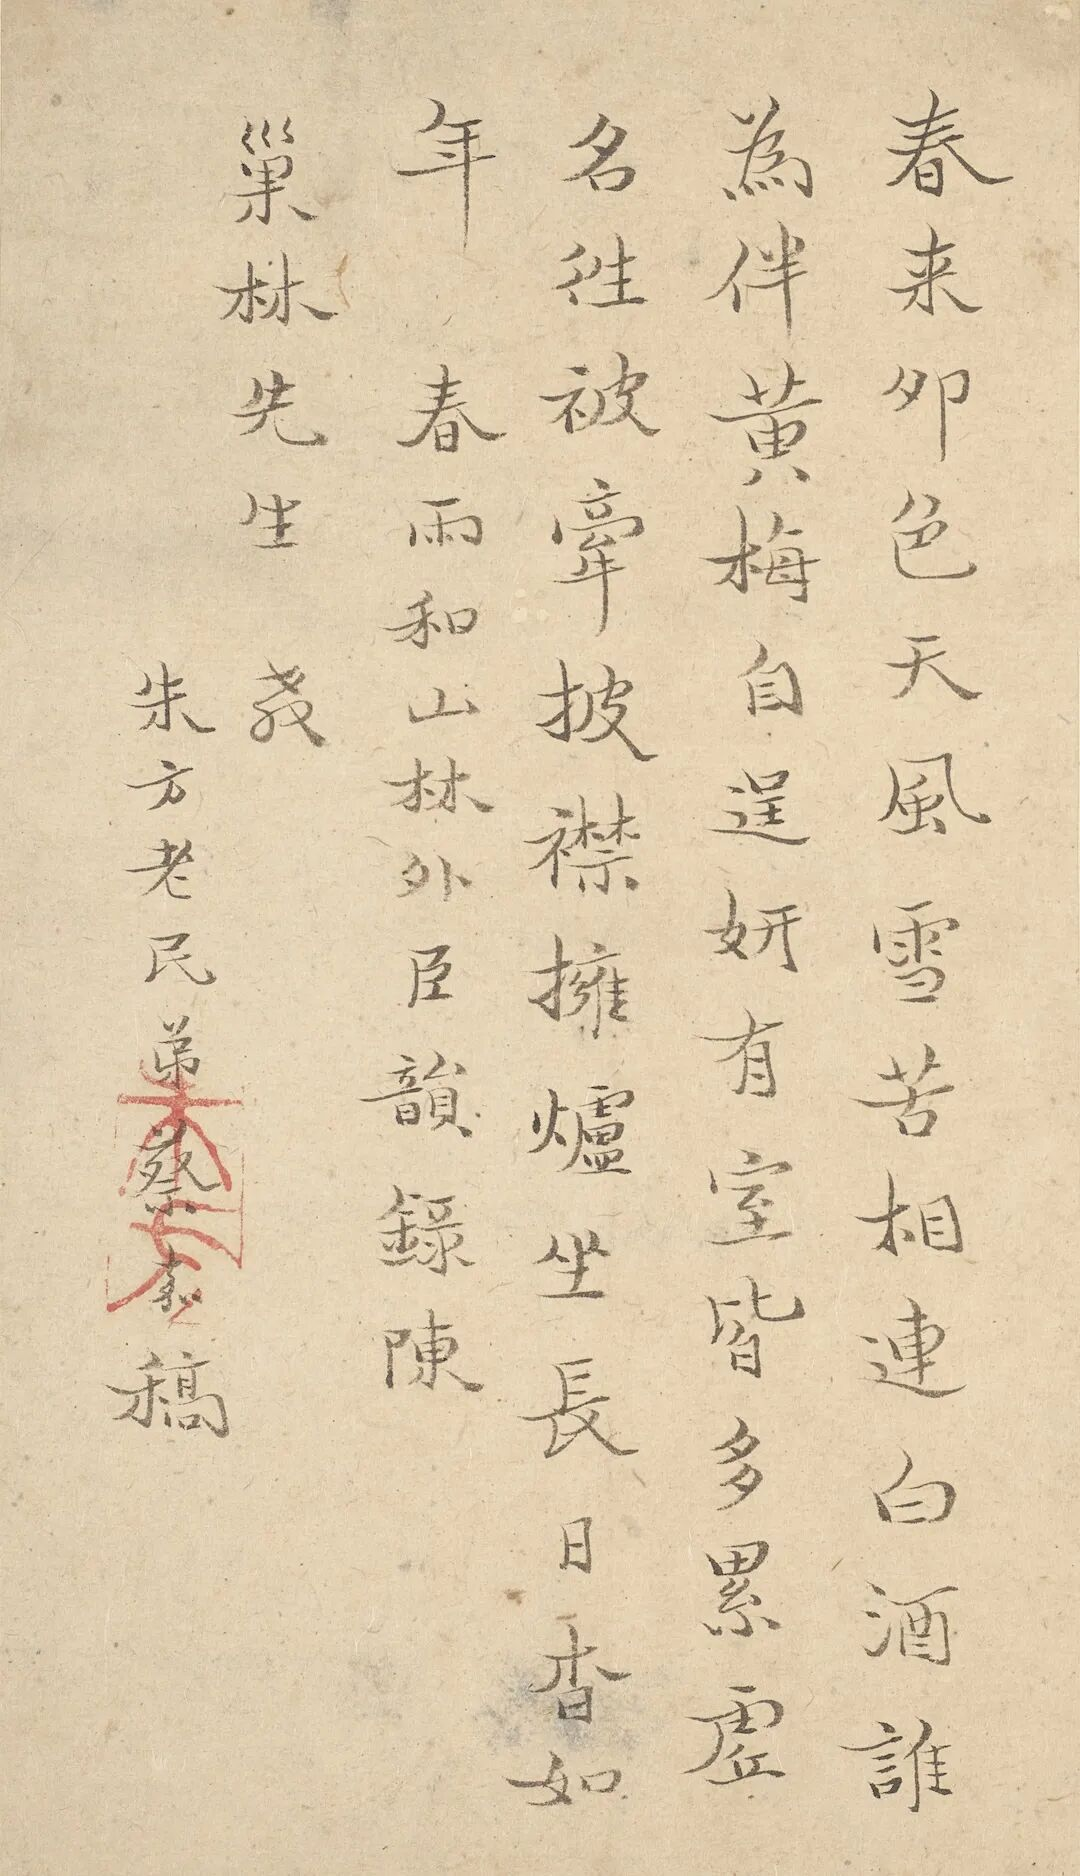 春来卯色天風雪苦相連白酒誰
為伴黄梅自逞妍有室皆多累虛
名徃被牽披襟擁爐坐長日杳如
年　春雨和山林外臣韻錄陳
巢林先生　教
朱方老民弟蔡嘉稿